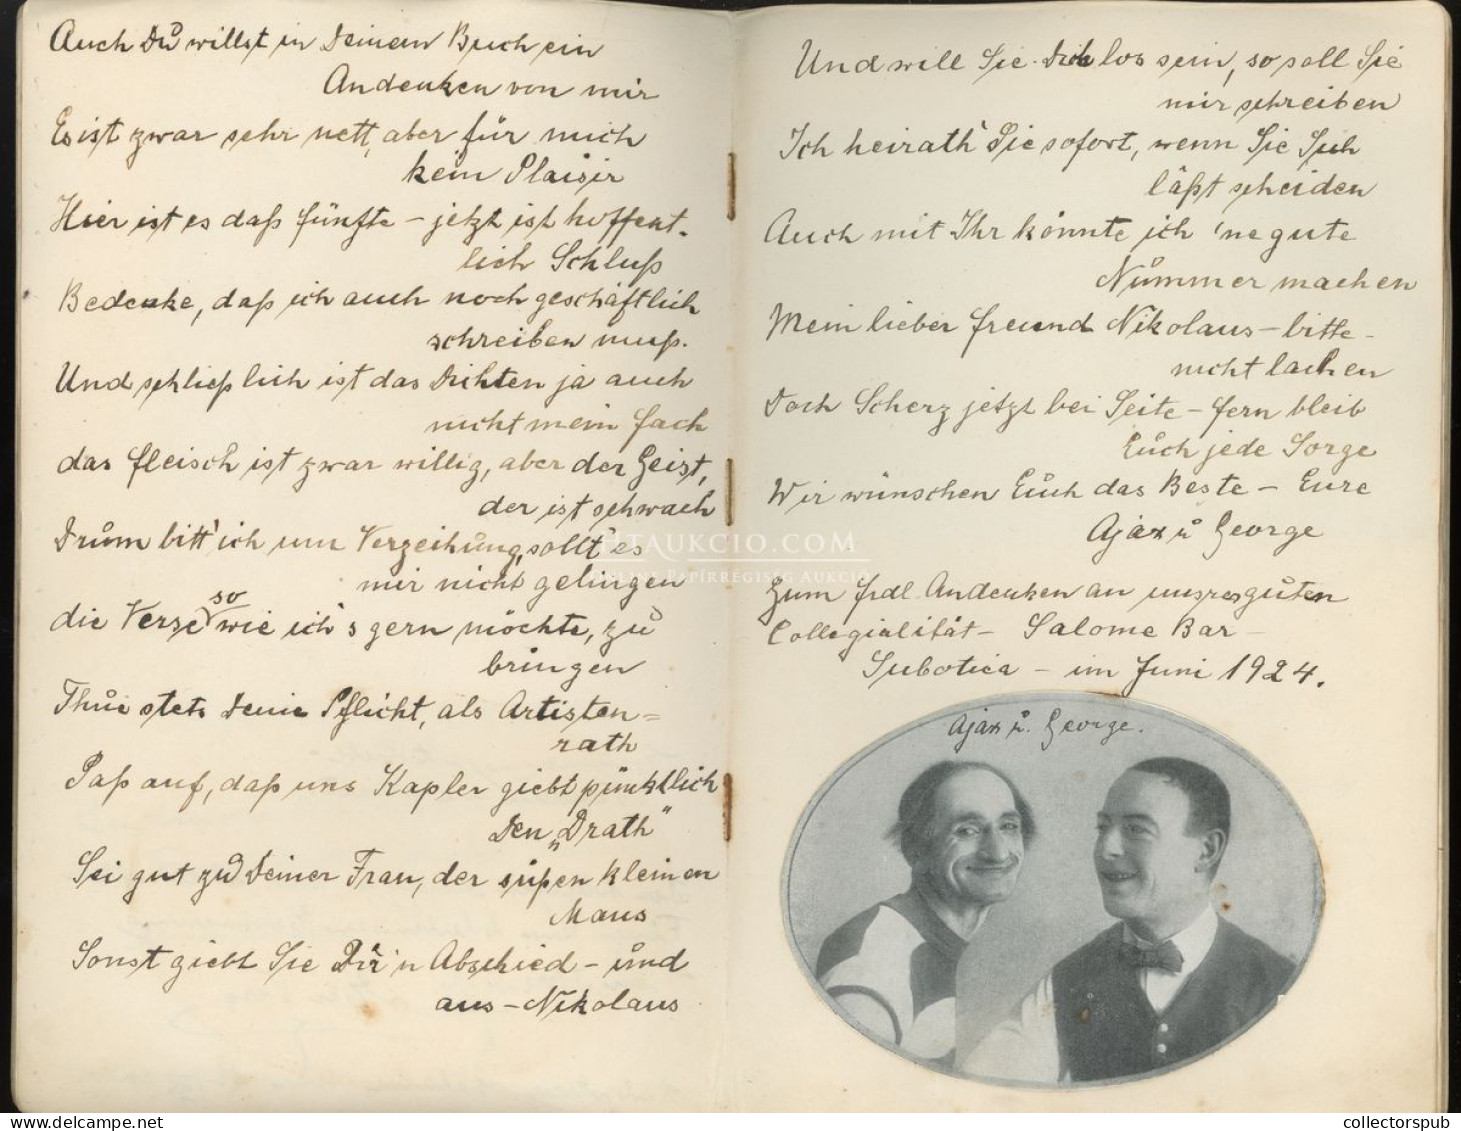 Auch Du willst in Deinem Buch ein
Andenken von mir
Es ist zwar sehr nett, aber für mich
kein Plaisir
Hier ist es daß fünfte – jetzt ist hoffent-
lich Schluß
Bedenke, daß ich auch noch geschäftlich
schreiben muß.
Und schließlich ist das Dichten ja auch
nicht mein Fach
das Fleisch ist zwar willig, aber der Geist,
der ist schwach
Drum bitt' ich um Verzeihung, sollt' es
mir nicht gelingen
die Verse so wie ich's gern möchte, zu
bringen
Thue stets Deine Pflicht, als Artisten=
rath
Paß auf, daß uns Kapler giebt pünktlich
Den „Drath"
Sei gut zu Deiner Frau, der süßen kleinen
Maus
Sonst giebt Sie Dir 'n Abschied – und
aus – Nikolaus
Und will Sie Dich los sein, so soll Sie
mir schreiben
Ich heirath' Sie sofort, wenn Sie Sich
läßt scheiden
Auch mit Ihr könnte ich 'ne gute
Nummer machen
Mein lieber Freund Nikolaus – bitte –
nicht lachen
Doch Scherz jetzt bei Seite – fern bleib
Euch jede Sorge
Wir wünschen Euch das Beste – Eure
Ajax u George
Zum frdl Andenken an unsre guten
Collegialität – Salome Bar –
Subotica – im Juni 1924.
Ajax u. George.
HTAUKCIO.COM
ONLINE PAPÍRRÉGISÉG AUKCIÓ
collectorspub